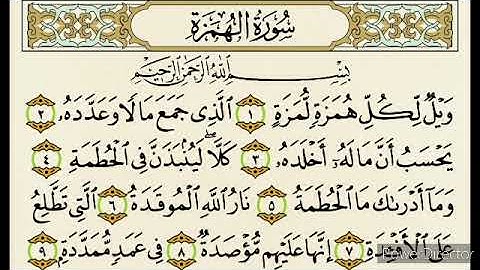 سُورَةُ الْهُمَزَةِ
بِسْمِ اللَّهِ الرَّحْمَٰنِ الرَّحِيمِ
وَيْلٌ لِّكُلِّ هُمَزَةٍ لُّمَزَةٍ ١ الَّذِى جَمَعَ مَالًا وَعَدَّدَهُۥ ٢
يَحْسَبُ أَنَّ مَالَهُۥٓ أَخْلَدَهُۥ ٣ كَلَّا ۖ لَيُنۢبَذَنَّ فِى الْحُطَمَةِ ٤
وَمَآ أَدْرَىٰكَ مَا الْحُطَمَةُ ٥ نَارُ اللَّهِ الْمُوقَدَةُ ٦ الَّتِى تَطَّلِعُ
عَلَى الْأَفْـِٔدَةِ ٧ إِنَّهَا عَلَيْهِم مُّؤْصَدَةٌ ٨ فِى عَمَدٍ مُّمَدَّدَةٍ ٩
PowerDirector